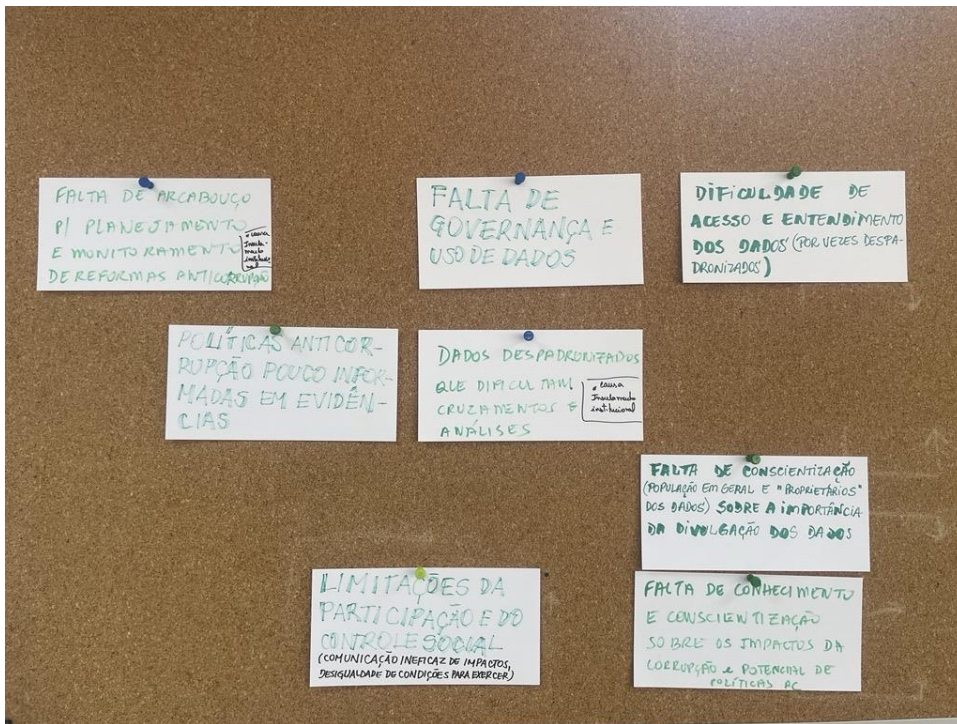 FALTA DE ARCABOUÇO
P/ PLANEJAMENTO
E MONITORAMENTO
DE REFORMAS ANTICORRUPÇÃO
* causa
Insula-
mento
institucio
nal
FALTA DE
GOVERNANÇA E
USO DE DADOS
DIFICULDADE DE
ACESSO E ENTENDIMENTO
DOS DADOS (POR VEZES DESPA-
DRONIZADOS)
POLÍTICAS ANTICOR-
RUPÇÃO POUCO INFOR-
MADAS EM EVIDÊN-
CIAS
DADOS DESPADRONIZADOS
QUE DIFICULTAM
CRUZAMENTOS E
ANÁLISES
* causa
Insulamento
institucional
FALTA DE CONSCIENTIZAÇÃO
(POPULAÇÃO EM GERAL E "PROPRIETÁRIOS"
DOS DADOS) SOBRE A IMPORTÂNCIA
DA DIVULGAÇÃO DOS DADOS
LIMITAÇÕES DA
PARTICIPAÇÃO E DO
CONTROLE SOCIAL
(COMUNICAÇÃO INEFICAZ DE IMPACTOS,
DESIGUALDADE DE CONDIÇÕES PARA EXERCER)
FALTA DE CONHECIMENTO
E CONSCIENTIZAÇÃO
SOBRE OS IMPACTOS DA
CORRUPÇÃO e POTENCIAL DE
POLÍTICAS AC